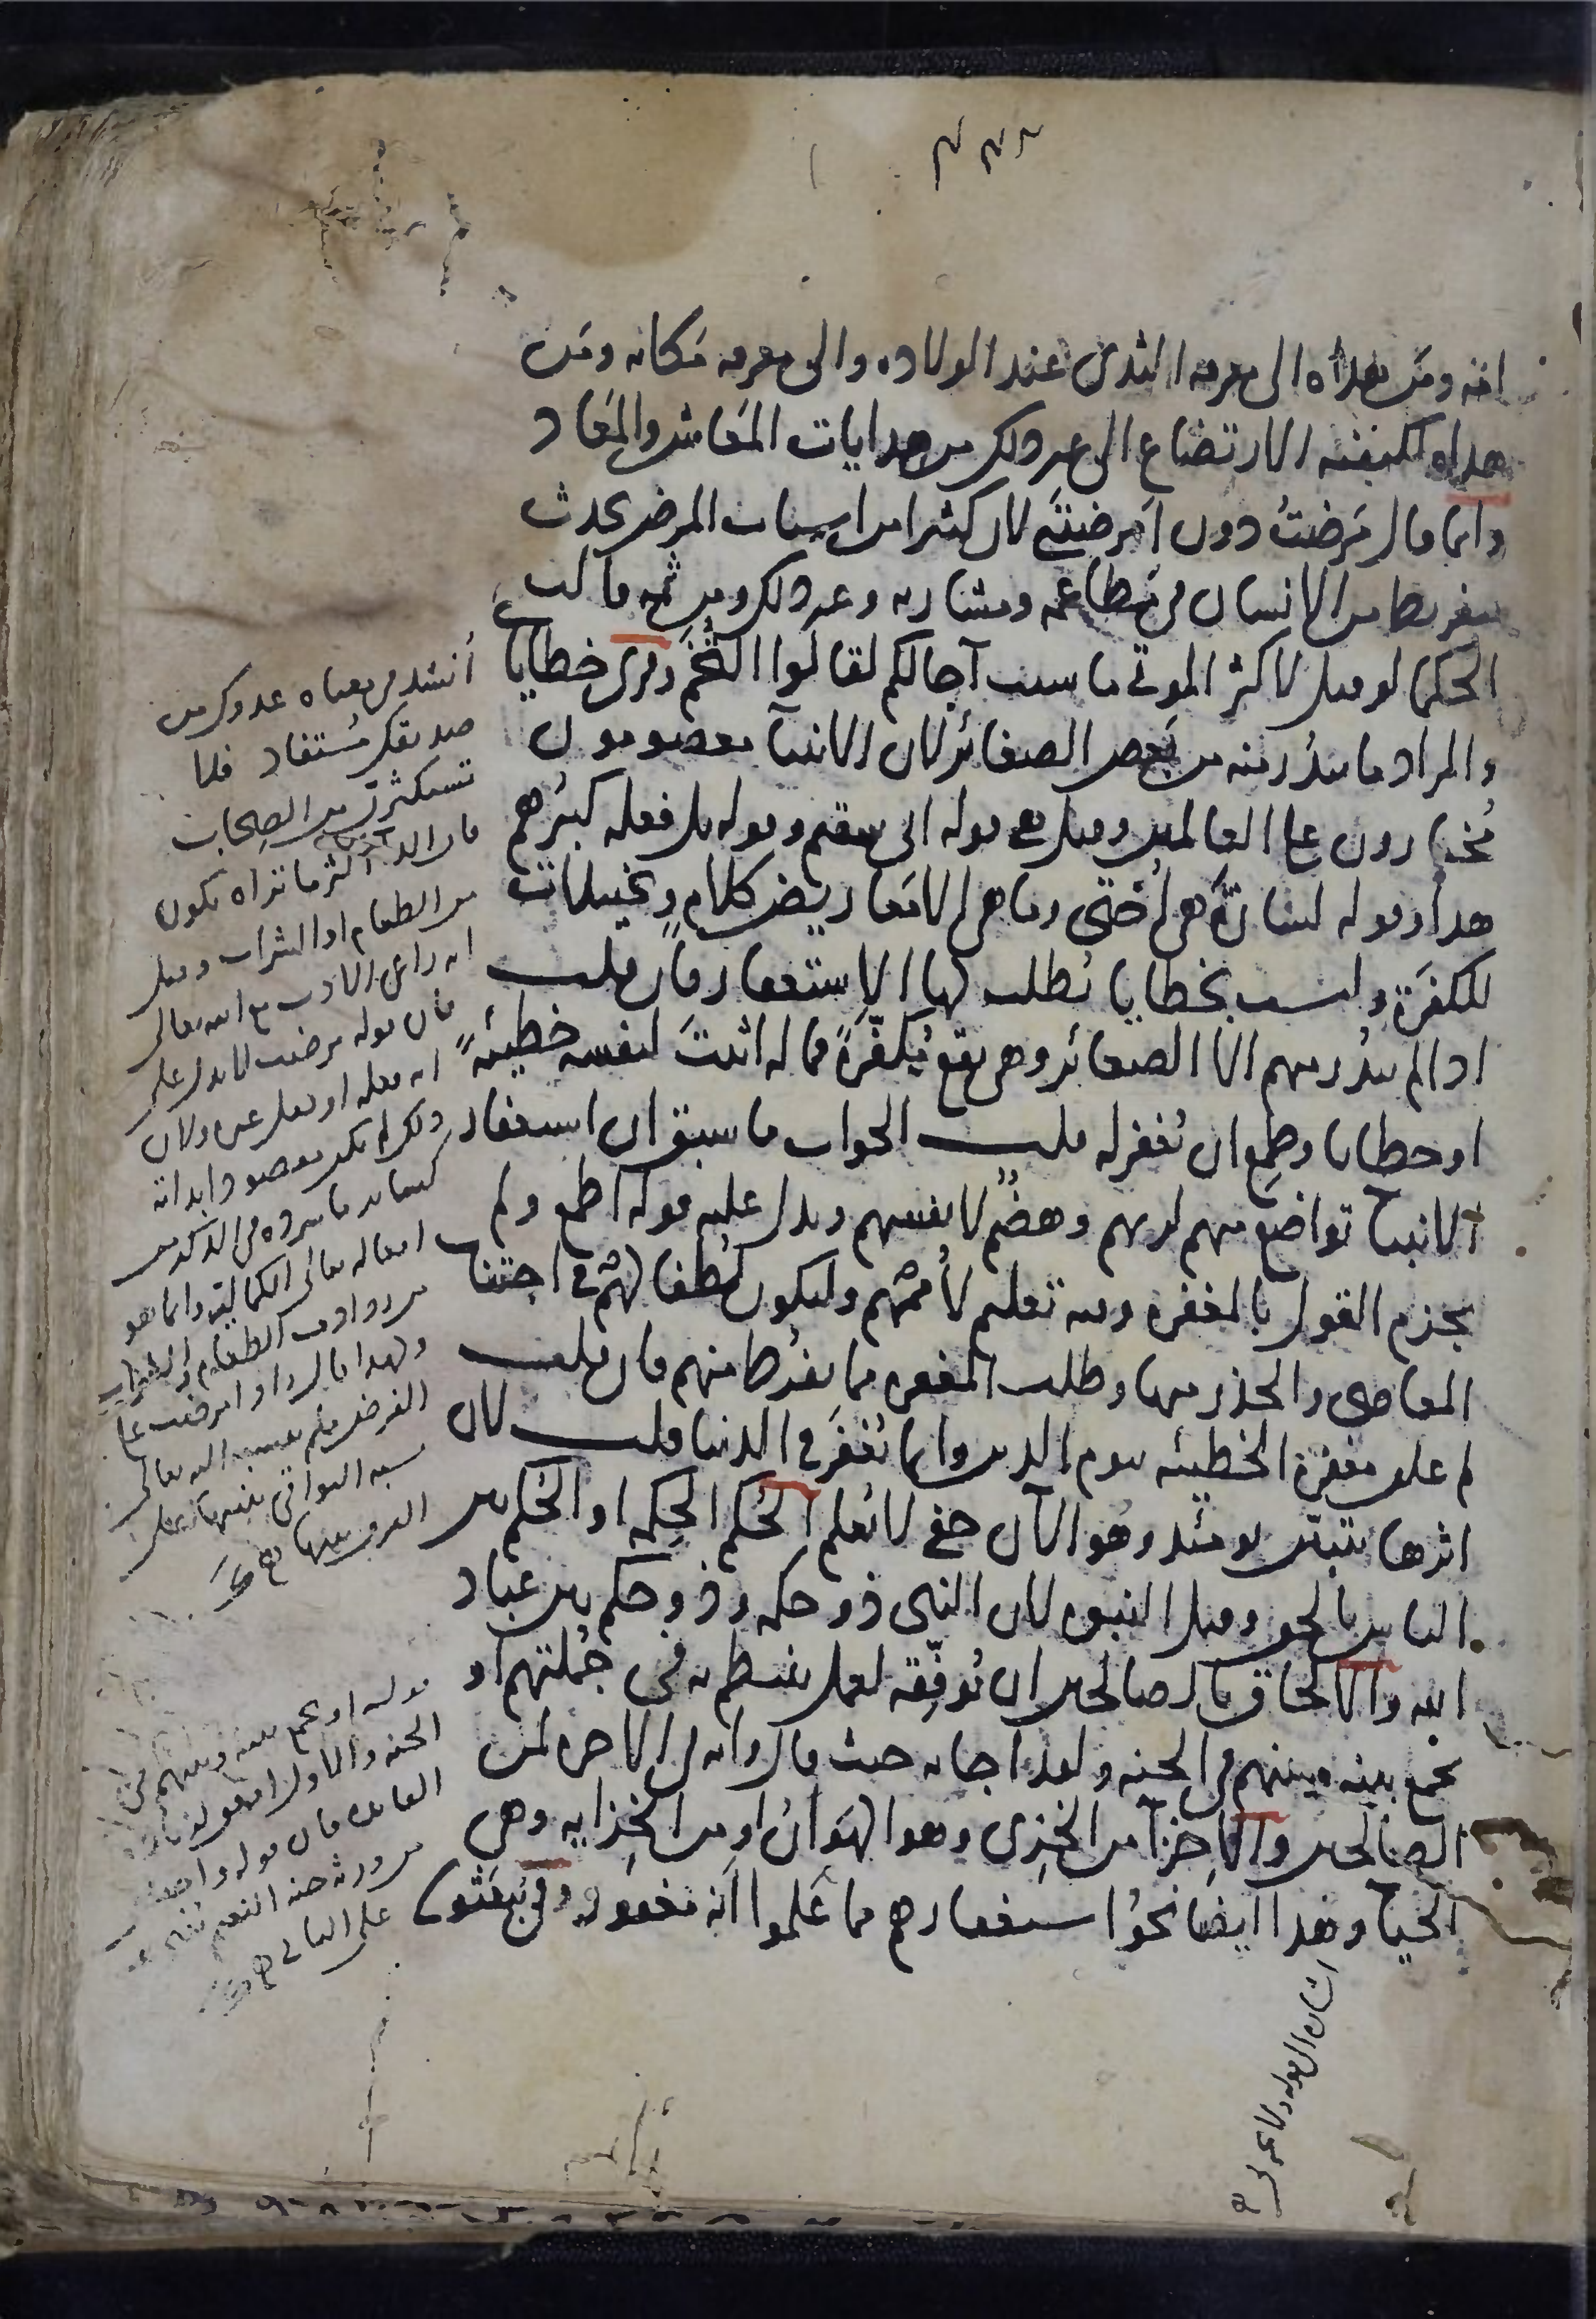 امه ومن هداه الى معرفه الثدى عند الولاده والى معرفه مكانه ومن
هداه لكيفيه الارتضاع الى غير ذلك من هدايات المعاش والمعاد
وانما قال مَرضتُ دون اَمرضنى لان كثيرا من اسباب المرض يحدث
بتفريط من الانسان فى مَطاعمه ومشاربه وغير ذلك ومن ثمه قالت
الحكما لو قيل لاكثر الموتى ما سبب آجالكم لقالوا التُّخَم وقرئ خطاياىَ
والمراد ما يندُر منه من بَعض الصغائر لان الانبيآ معصومون
مُختارون على العالمين وقيل هى قوله انى سقيم وقوله بل فعله كبيرُهم
هذا وقوله لسارَّةَ هى اُختى وما هى الا مَعاريض كلامٍ وتخييلات
للكفَرةِ وليست بخطايا يُطلب لها الاِستغفار فان قلت
اذا لم يندُر منهم الا الصغائر وهى تقع مُكفَّرَةً فما له اثبتَ لنفسه خطيئةً
او خطايا وطمِع ان تُغفر له قلت الجواب ما سبق ان استغفار
الانبيا تواضع منهم لربهم وهضمٌ لانفسهم ويدل عليه قوله اطمع ولم
يجزم القول بالمغفره وفيه تعليم لاُممهم وليكون لُطفا لهم فى اجتناب
المعاصى والحذر منها وطلب المغفره مما يفرُط منهم فان قلت
لم علق مغفرة الخطيئه بيوم الدين وانما تُغفَر فى الدنيا قلت لان
اثرها يتبيّن يومئذ وهو الآن خفى لا يُعلم الحُكم الحِكمه او الحُكم بين
الناس بالحق وقيل النبوه لان النبى ذو حكمه وذو حكم بين عباد
الله والالحاق بالصالحين ان يُوفِّقه لعمل ينتظم به فى جُملتهم او
يجمع بينه وبينهم فى الجنه ولقد اجابه حيث قال وانه فى الاخره لمن
الصالحين والاِخزآ من الخِزى وهو الهَوانُ او من الخِزايه وهى
الحيا وهذا ايضا نحوُ استغفارهم مما عَلموا انه مغفور وفى يُبعَثون
أنشد فى معناه عدوك من
صديقك مُستفاد فلا
تستكثرن من الصِحاب
فان الدآ اكثر ما تراه يكون
من الطعام او الشراب وقيل
انه راعى الادب مع الله تعالى
فان قوله مرضت لا يدل على
انه فعله او فعل غيره ولان
ذلك لم يكن مقصودا بذاته
افعاله تعالى الكماليه وانما هو
من روادف الطعام والشراب
قوله او يجمع بينه وبينهم فى
من ورثه جنه النعيم
على الثانى